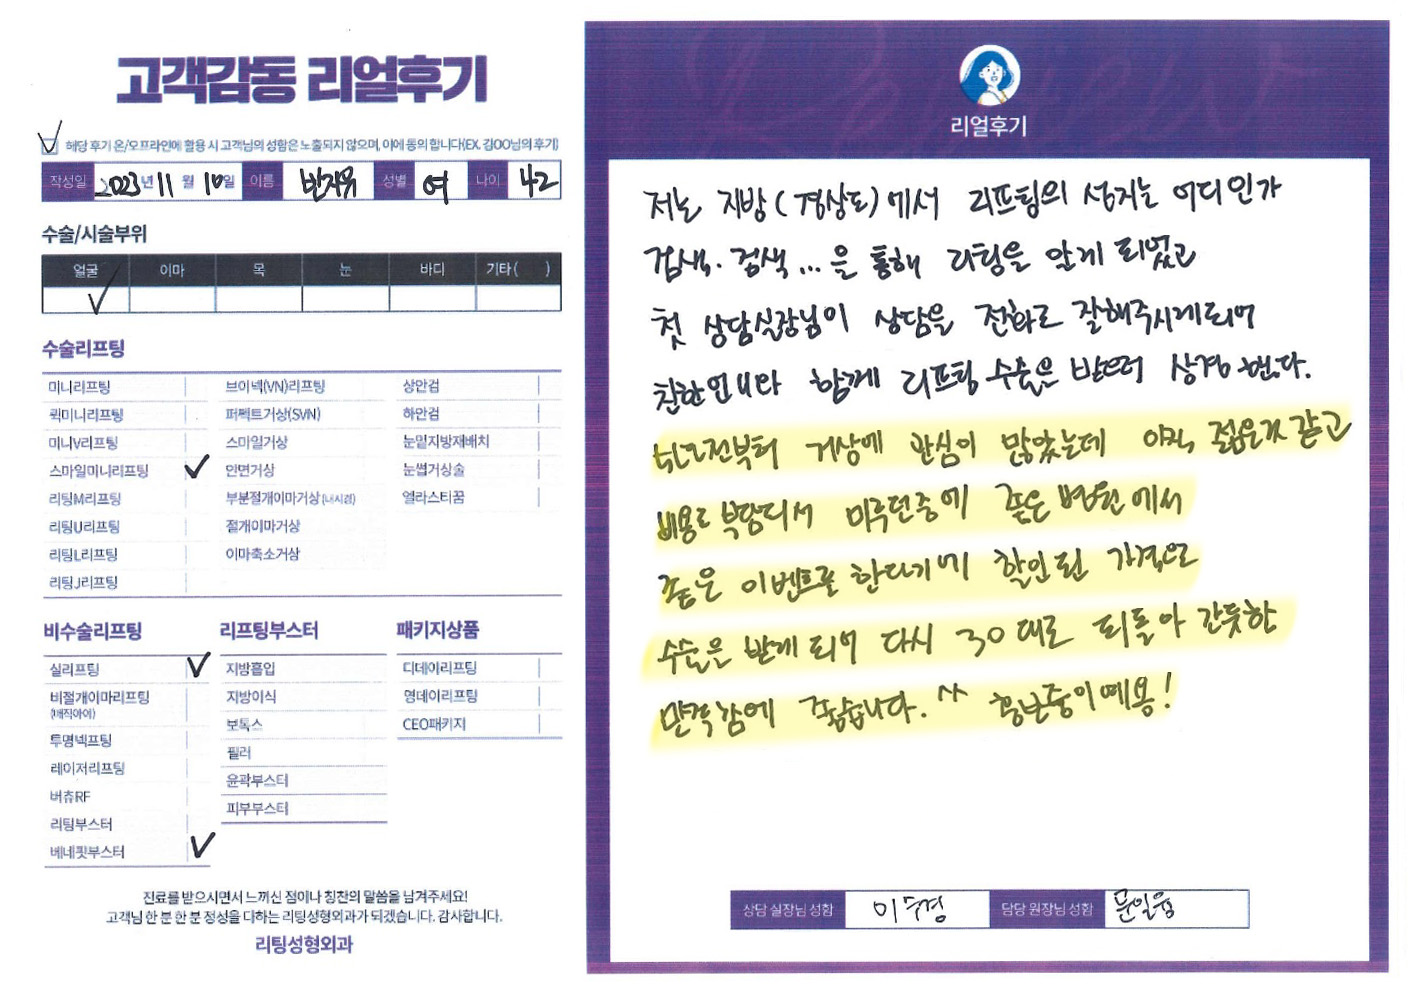 고객감동 리얼후기
해당 후기 온/오프라인에 활용 시 고객님의 성함은 노출되지 않으며, 이에 동의 합니다(EX. 김OO님의 후기)
작성일 2023년 11월 10일 이름 반지유 성별 여 나이 42
수술/시술부위
얼굴 이마 목 눈 바디 기타( )
수술리프팅
미니리프팅
퀵미니리프팅
미니V리프팅
스마일미니리프팅
리팅M리프팅
리팅U리프팅
리팅L리프팅
리팅J리프팅
브이넥(VN)리프팅
퍼펙트거상(SVN)
스마일거상
안면거상
부분절개이마거상 (내시경)
절개이마거상
이마축소거상
상안검
하안검
눈밑지방재배치
눈썹거상술
엘라스티꿈
비수술리프팅
실리프팅
비절개이마리프팅
(매직아이)
투명넥프팅
레이저리프팅
버츄RF
리팅부스터
베네핏부스터
리프팅부스터
지방흡입
지방이식
보톡스
필러
윤곽부스터
피부부스터
패키지상품
디데이리프팅
영데이리프팅
CEO패키지
진료를 받으시면서 느끼신 점이나 칭찬의 말씀을 남겨주세요!
고객님 한 분 한 분 정성을 다하는 리팅성형외과가 되겠습니다. 감사합니다.
리팅성형외과
리얼후기
저는 지방(경상도)에서 리프팅의 성지는 어디인가
검색.검색...을 통해 리팅을 알게 되었고
첫 상담실장님이 상담을 전화로 잘해주시게되어
친한언니랑 함께 리프팅 수술을 받으러 상경했다.
년전부터 거상에 관심이 많았는데 아직 젊은것 같고
비용도 부담되서 미루던중에 좋은 병원에서
좋은 이벤트를 한다기에 할인된 가격으로
수술을 받게 되어 다시 30대로 되돌아 간듯한
만족함에 좋습니다.^^ 흥분중이예용!
상담 실장님 성함 이수경 담당 원장님 성함 문일웅